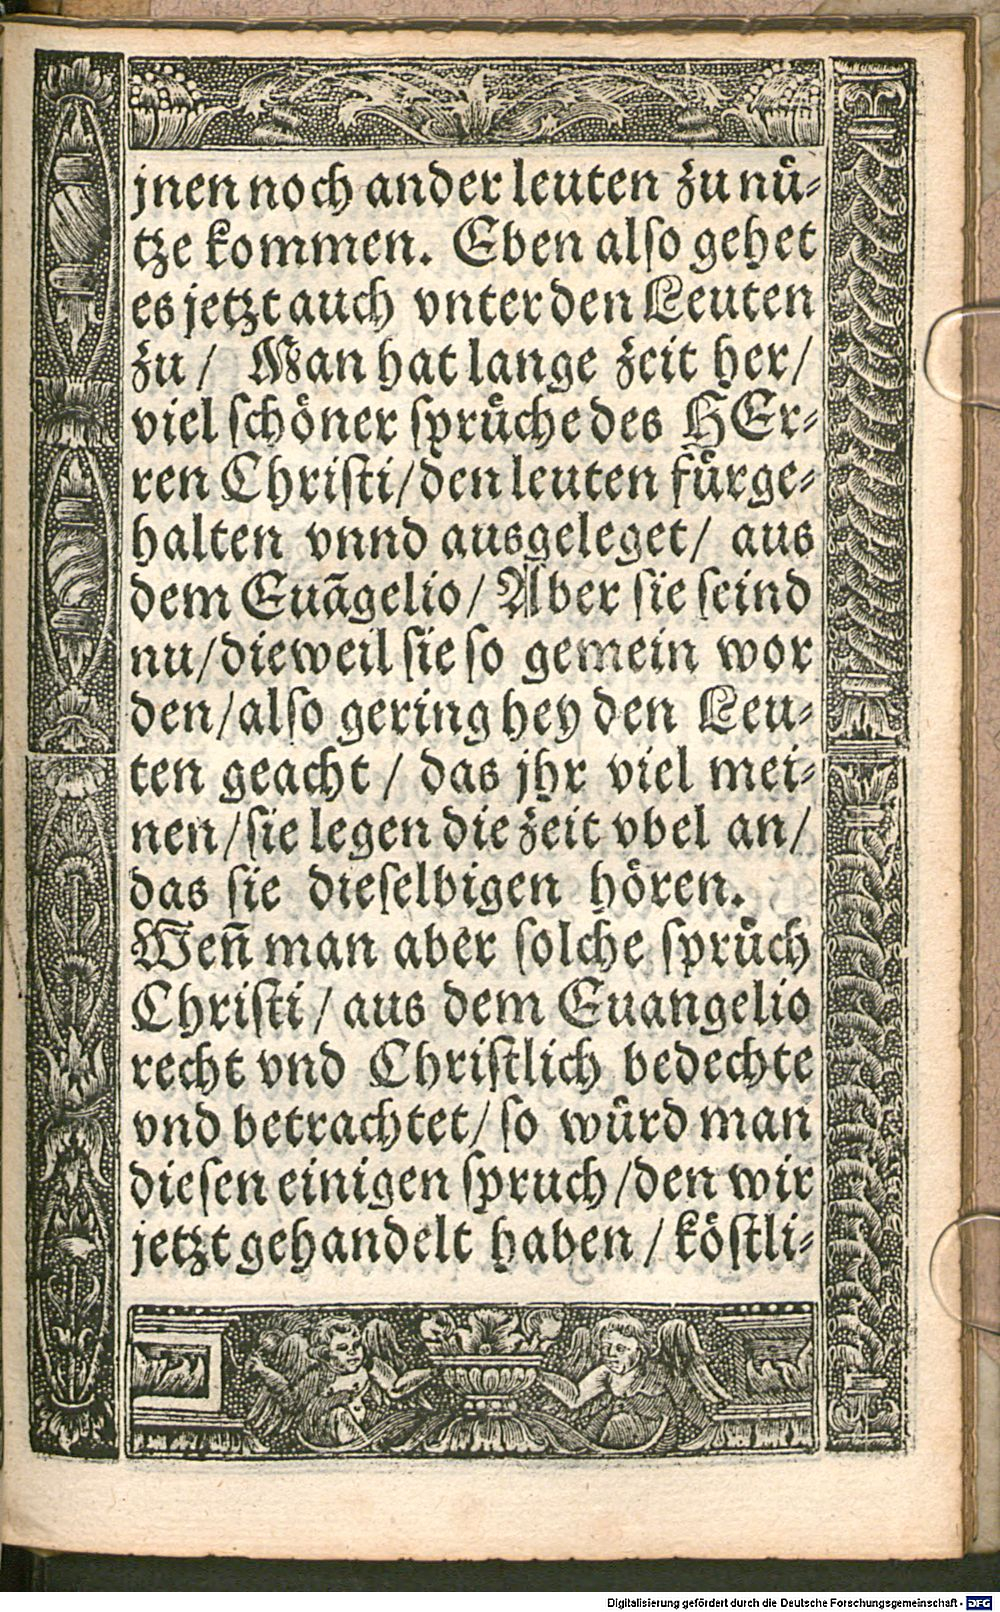 jnen noch ander leuten zu nuͤ-
tze kommen. Eben also gehet
es jetzt auch vnter den Leuten
zu / Man hat lange zeit her /
viel schoͤner spruͤche des HEr-
ren Christi / den leuten fuͤrge-
halten vnnd ausgeleget / aus
dem Euãgelio / Aber sie seind
nu / dieweil sie so gemein wor
den / also gering bey den Leu-
ten geacht / das jhr viel mei-
nen / sie legen die zeit vbel an /
das sie dieselbigen hoͤren.
Weñ man aber solche spruͤch
Christi / aus dem Euangelio
recht vnd Christlich bedechte
vnd betrachtet / so wuͤrd man
diesen einigen spruch / den wir
jetzt gehandelt haben / koͤstli-
Digitalisierung gefördert durch die Deutsche Forschungsgemeinschaft - DFG